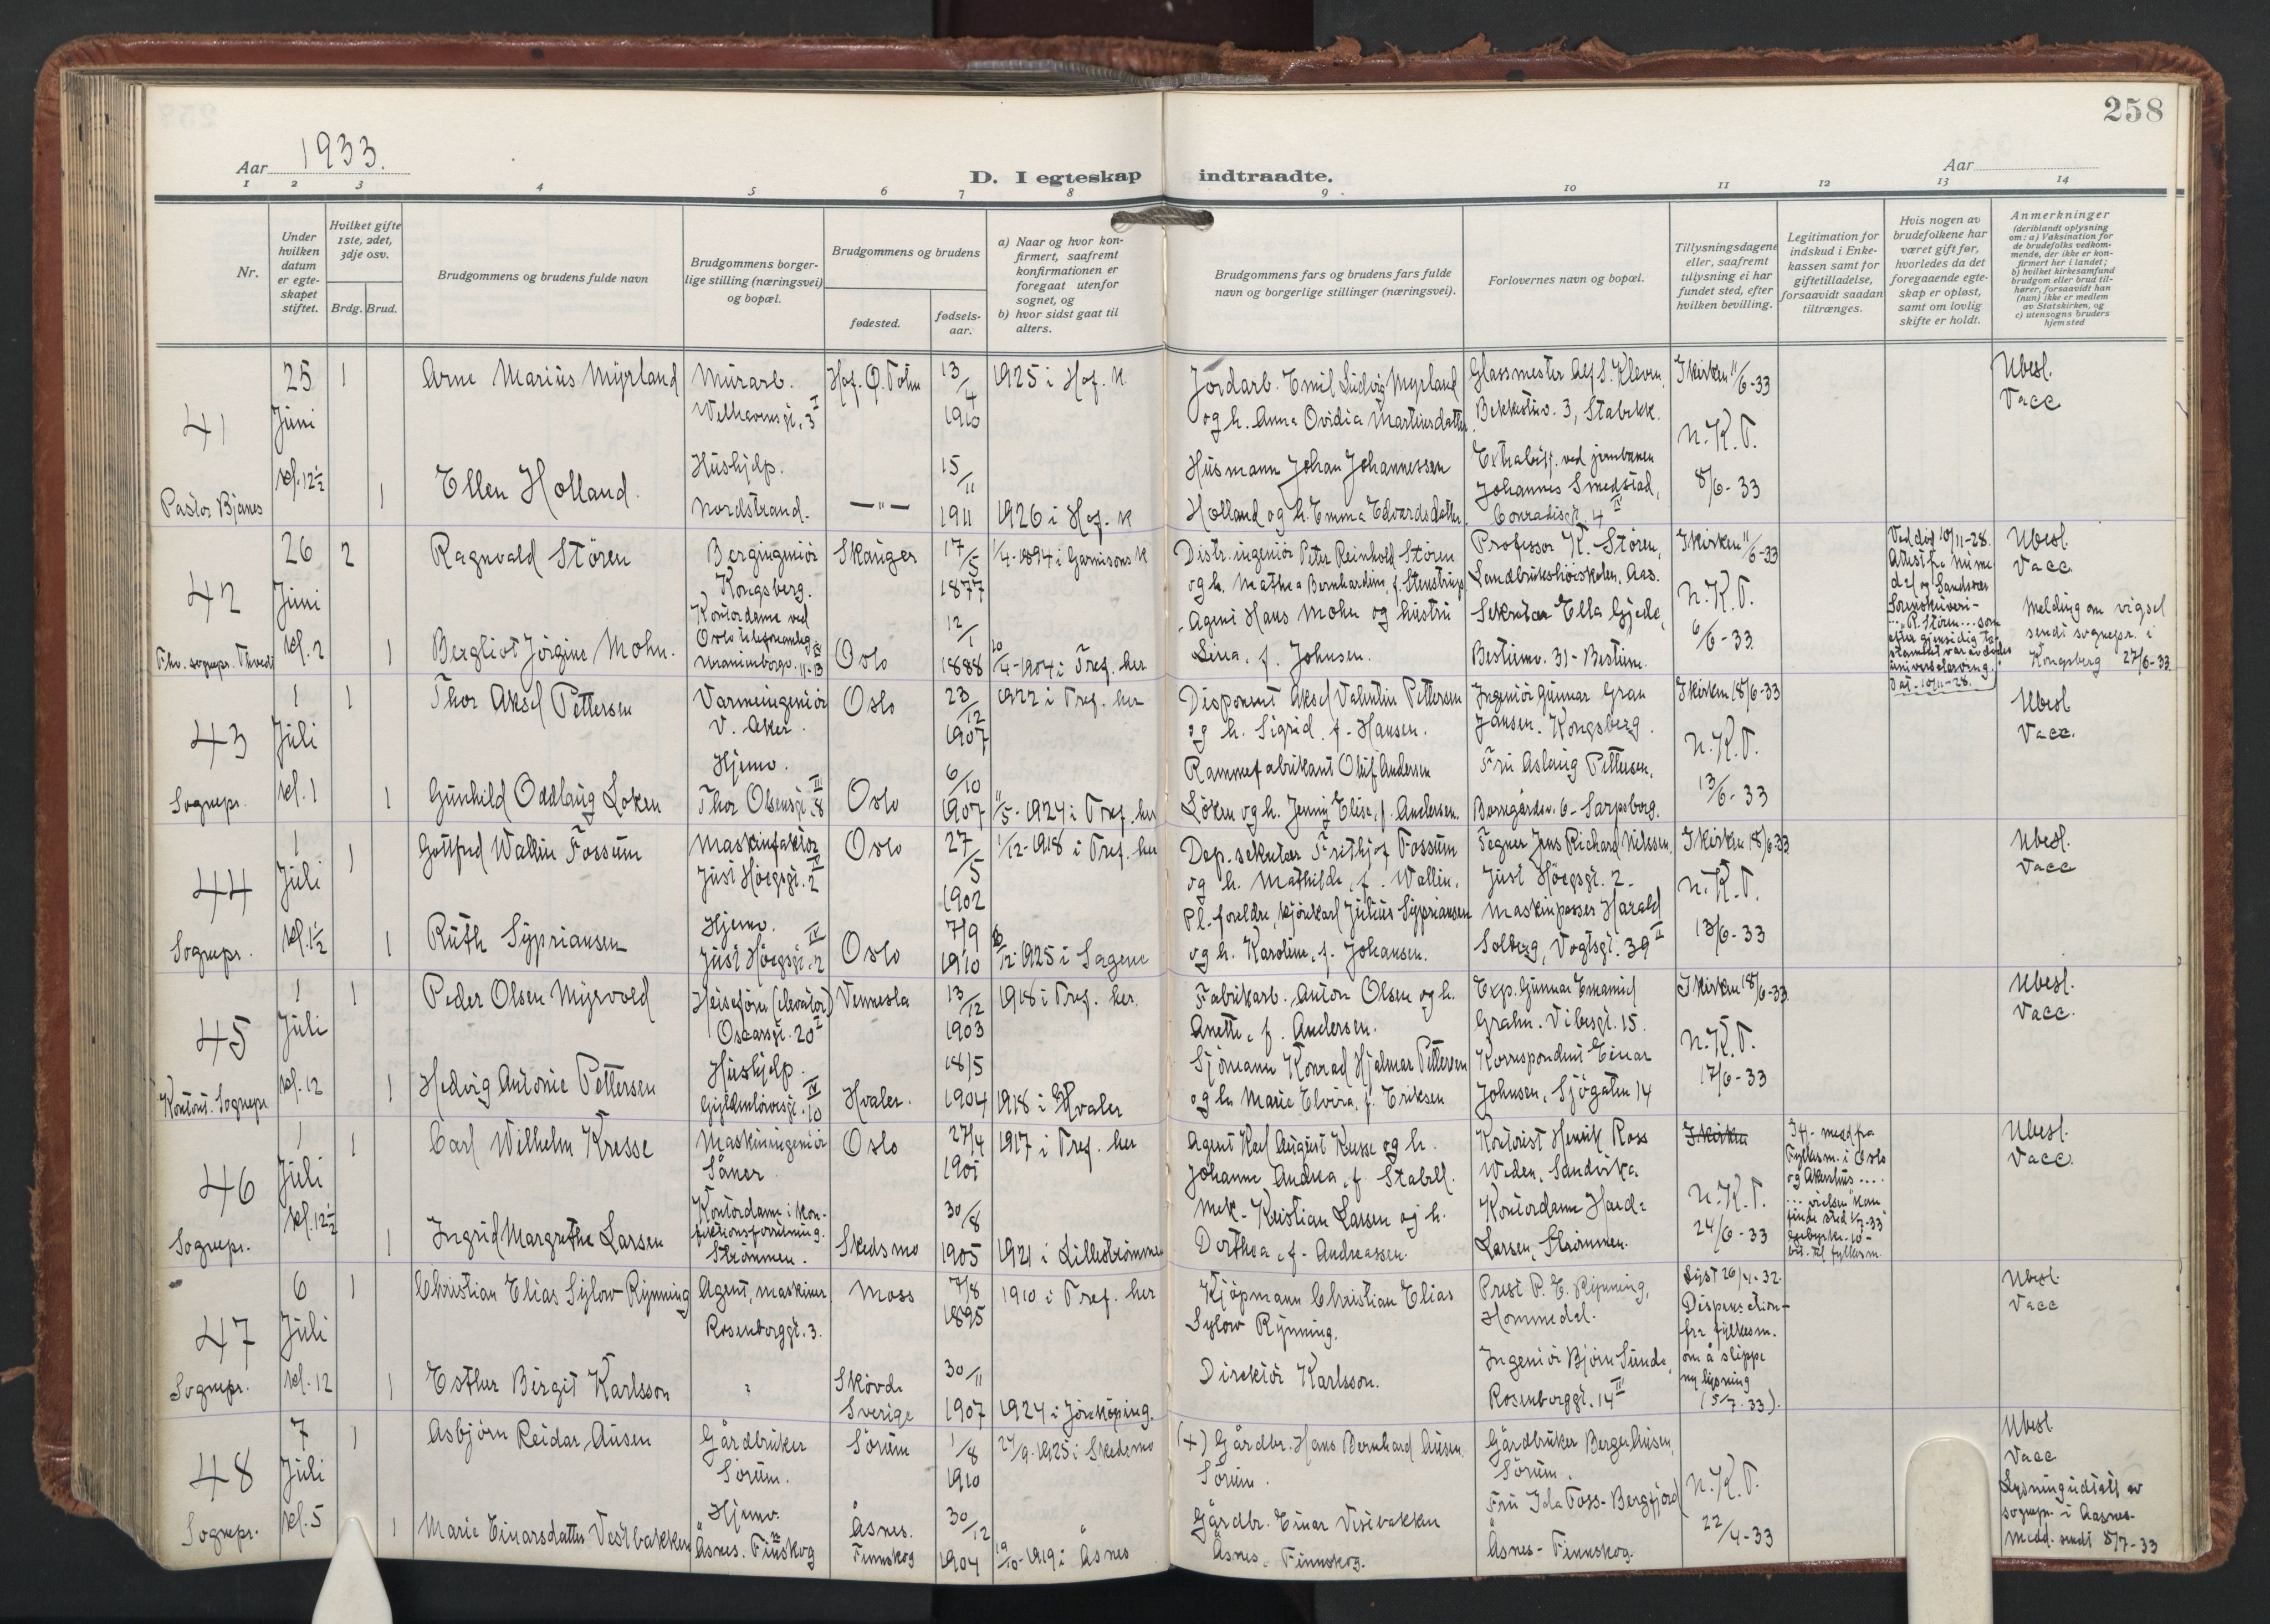 258
Aar 1933.
Aar
D. I egteskap indtraadte.
1 2 3 4 5 6 7 8 9 10 11 12 13 14
Nr.
Under hvilken datum er egteskapet stiftet.
Hvilket gifte 1ste, 2det, 3dje osv.
Brdg. Brud.
Brudgommens og brudens fulde navn
Brudgommens borgerlige stilling (næringsvei) og bopæl.
Brudgommens og brudens
fødested.
fødselsaar.
a) Naar og hvor konfirmert, saafremt konfirmationen er foregaat utenfor sognet, og
b) hvor sidst gaat til alters.
Brudgommens fars og brudens fars fulde navn og borgerlige stillinger (næringsvei).
Forlovernes navn og bopæl.
Tillysningsdagene eller, saafremt tillysning ei har fundet sted, efter hvilken bevilling.
Legitimation for indskud i Enkekassen samt for giftetilladelse, forsaavidt saadan tiltrænges.
Hvis nogen av brudefolkene har været gift før, hvorledes da det foregaaende egteskap er opløst, samt om lovlig skifte er holdt.
Anmerkninger (deriblandt oplysning om: a) Vaksination for de brudefolks vedkommende, der ikke er konfirmert her i landet; b) hvilket kirkesamfund brudgom eller brud tilhører, forsaavidt han (hun) ikke er medlem av Statskirken, og c) utensogns bruders hjemsted
41
25 Juni kl. 12½
Pastor Bjanes
1 Arne Marius Myrland
Murarb.
Welhavensgt. 3 I
Hof. Ø. Toten
13/4 1910
1925 i Hof. K.
Jordarb. Emil Ludvig Myrland
og h. Anna Ovidia Martinsdatter
Glassmester Alf S. Kleven,
Bekkestuv. 3, Stabekk.
I kirken 11/6-33
N.K.T.
8/6-33
Ubesl.
Vacc
1 Ellen Holland.
Hushjelp.
Nordstrand.
—"—
15/11 1911
1926 i Hof. K
Husmann Johan Johannessen
Holland og h. Emma Edvardsdatter
Extrabetj. ved jernbanen
Johannes Smedstad,
Conradisgt. 4 IV
42
26 Juni kl. 2
Fhv. sognepr. Thvedt
2 Ragnvald Stören
Bergingeniör
Kongsberg.
Skauger
17/5 1877
1/4-1894 i Garnisons K
Distr. ingeniör Peter Reinhold Stören
og h. Mathea Bernhardine, f. Stenstrup
Professor K. Stören,
Landbrukshöiskolen, Aas.
I kirken 11/6-33
N.K.T.
6/6-33
Ved död 10/11-28.
Attest fra Numedal og Sandsvær
Sorenskriveri-
Ubesl.
Vacc
Melding om vigsel
sendt sognepr. i
Kongsberg 27/6-33
1 Bergliot Jörgine Mohn.
Kontordame ved
Oslo telefonanlegg
Uranienborgv. 11-13
Oslo
12/1 1888
10/4-1904 i Tref. her
Agent Hans Mohn og hustru
Sina, f. Johnsen.
Sekretær Ella Gjede,
Bestumv. 31 - Bestum.
43
1 Juli kl. 1
Sognepr.
1 Thor Aksel Pettersen
Varmeingeniör
V. Aker.
Oslo
23/12 1907
1922 i Tref. her
Disponent Aksel Valentin Pettersen
og h. Sigrid, f. Hansen.
Ingeniör Gunnar Gran
Jansen. Kongsberg.
I kirken 18/6-33
N.K.T.
13/6-33
Ubesl
Vacc.
1 Gunhild Oddlaug Löken
Hjemv.
Thor Olsensgt. 8 III
Oslo
6/10 1907
11/5-1924 i Tref. her
Rammefabrikant Oluf Andersen
Löken og h. Jenny Elise, f. Andersen.
Fru Aslaug Pettersen,
Borregårdsv. 6 - Sarpsborg.
44
1 Juli kl. 1½
Sognepr.
1 Gottfred Wallin Fossum
Maskinfaktor
Just Höegsgt. 2 IV
Oslo
27/5 1902
1/12-1918 i Tref. her
Dep. sekretær Frithjof Fossum
og h. Mathilde, f. Wallin.
Tegner Jens Richard Nilssen.
Just Höegsgt. 2.
I kirken 18/6-33
N.K.T.
13/6-33
Ubesl.
Vacc
1 Ruth Sypriansen
Hjemv.
Just Höegsgt. 2 IV
Oslo
7/9 1910
1925 i Sagene
Pl. foreldre, kjörekarl Julius Sypriansen
og h. Karoline, f. Johansen.
Maskinpasser Harald
Solberg, Vogtsgt. 39 II
45
1 Juli kl. 12
Konst. Sognepr
1 Peder Olsen Myrvold
Heiseförer (elevator)
Oscarsgt. 20 I
Vennesla
13/12 1903
1918 i Tref. her.
Fabrikarb. Anton Olsen og h.
Anette, f. Andersen.
Exp. Gunnar Emanuel
Grahn. Vibesgt. 15.
I kirken 18/6-33
N.K.T.
17/6-33
Ubesl.
Vacc.
1 Hedvig Antonie Pettersen
Hushjelp.
Gyldenlövesgt. 10 IV
Hvaler.
18/5 1904
1918 i Hvaler
Sjömann Konrad Hjalmar Pettersen
og h. Marie Elvira, f. Eriksen
Korrespondent Einar
Johnsen, Sjögaten 14
46
1 Juli kl. 12½
Sognepr.
1 Carl Wilhelm Kresse
Maskiningeniör
Såner.
Oslo
27/4 1901
1917 i Tref. her
Agent Karl August Kresse og h.
Johanne Andrea, f. Stabell.
Kontorist Henrik Ross
Weden, Sandvika.
I kirken
N.K.T.
24/6-33
Iflg. medd. fra
Fylkesm. i Oslo
og Akershus ....
Ubesl.
Vacc.
1 Ingrid Margrethe Larsen
Kontordame i konfektionsforretning.
Strömmen.
Skedsmo
30/8 1905
1921 i Lilleströmmen
Mek. Kristian Larsen og h.
Dorthea, f. Andreassen.
Kontordame
Larsen, Strömmen.
47
6 Juli kl. 12
Sognepr.
1 Christian Elias Sylow Rynning
Agent, maskiner
Rosenborggt. 3.
Moss
7/8 1895
1910 i Tref. her
Kjöpmann Christian Elias
Sylow Rynning.
Prest P. E. Rynning,
Hommedal.
Lyst 26/4-32.
Dispensation
fra fylkesm.
om å slippe
ny lysning
(5/7.33).
Ubesl.
Vacc
1 Esther Birgit Karlsson
?
Skövde
Sverige
30/11 1907
1924 i Jönköping.
Direktör Karlsson.
Ingeniör Björn Sunde,
Rosenborggt. 14 II
48
7 Juli kl. 5
Sognepr.
1 Asbjörn Reidar Ausen
Gårdbruker
Sörum.
Sörum
1/8 1910
27/9-1925 i Skedsmo
(+) Gårdbr. Hans Bernhard Ausen
Sörum.
Gårdbruker Berger Ausen,
Sörum.
N.K.T.
22/4-33
Ubesl
Vacc
Lysning utstedt av
sognepr. i Aasnes.
Medd. sendt 8/7-33
1 Marie Einarsdatter Vestbakken
Hjemv.
Åsnes. Finnskog
Åsnes.
Finnskog
30/12 1904
19/10-1919 i Åsnes
Gårdbr. Einar Vestbakken
Åsnes, Finnskog.
Fru Ida Foss-Bergfjord
Åsnes-Finnskog.